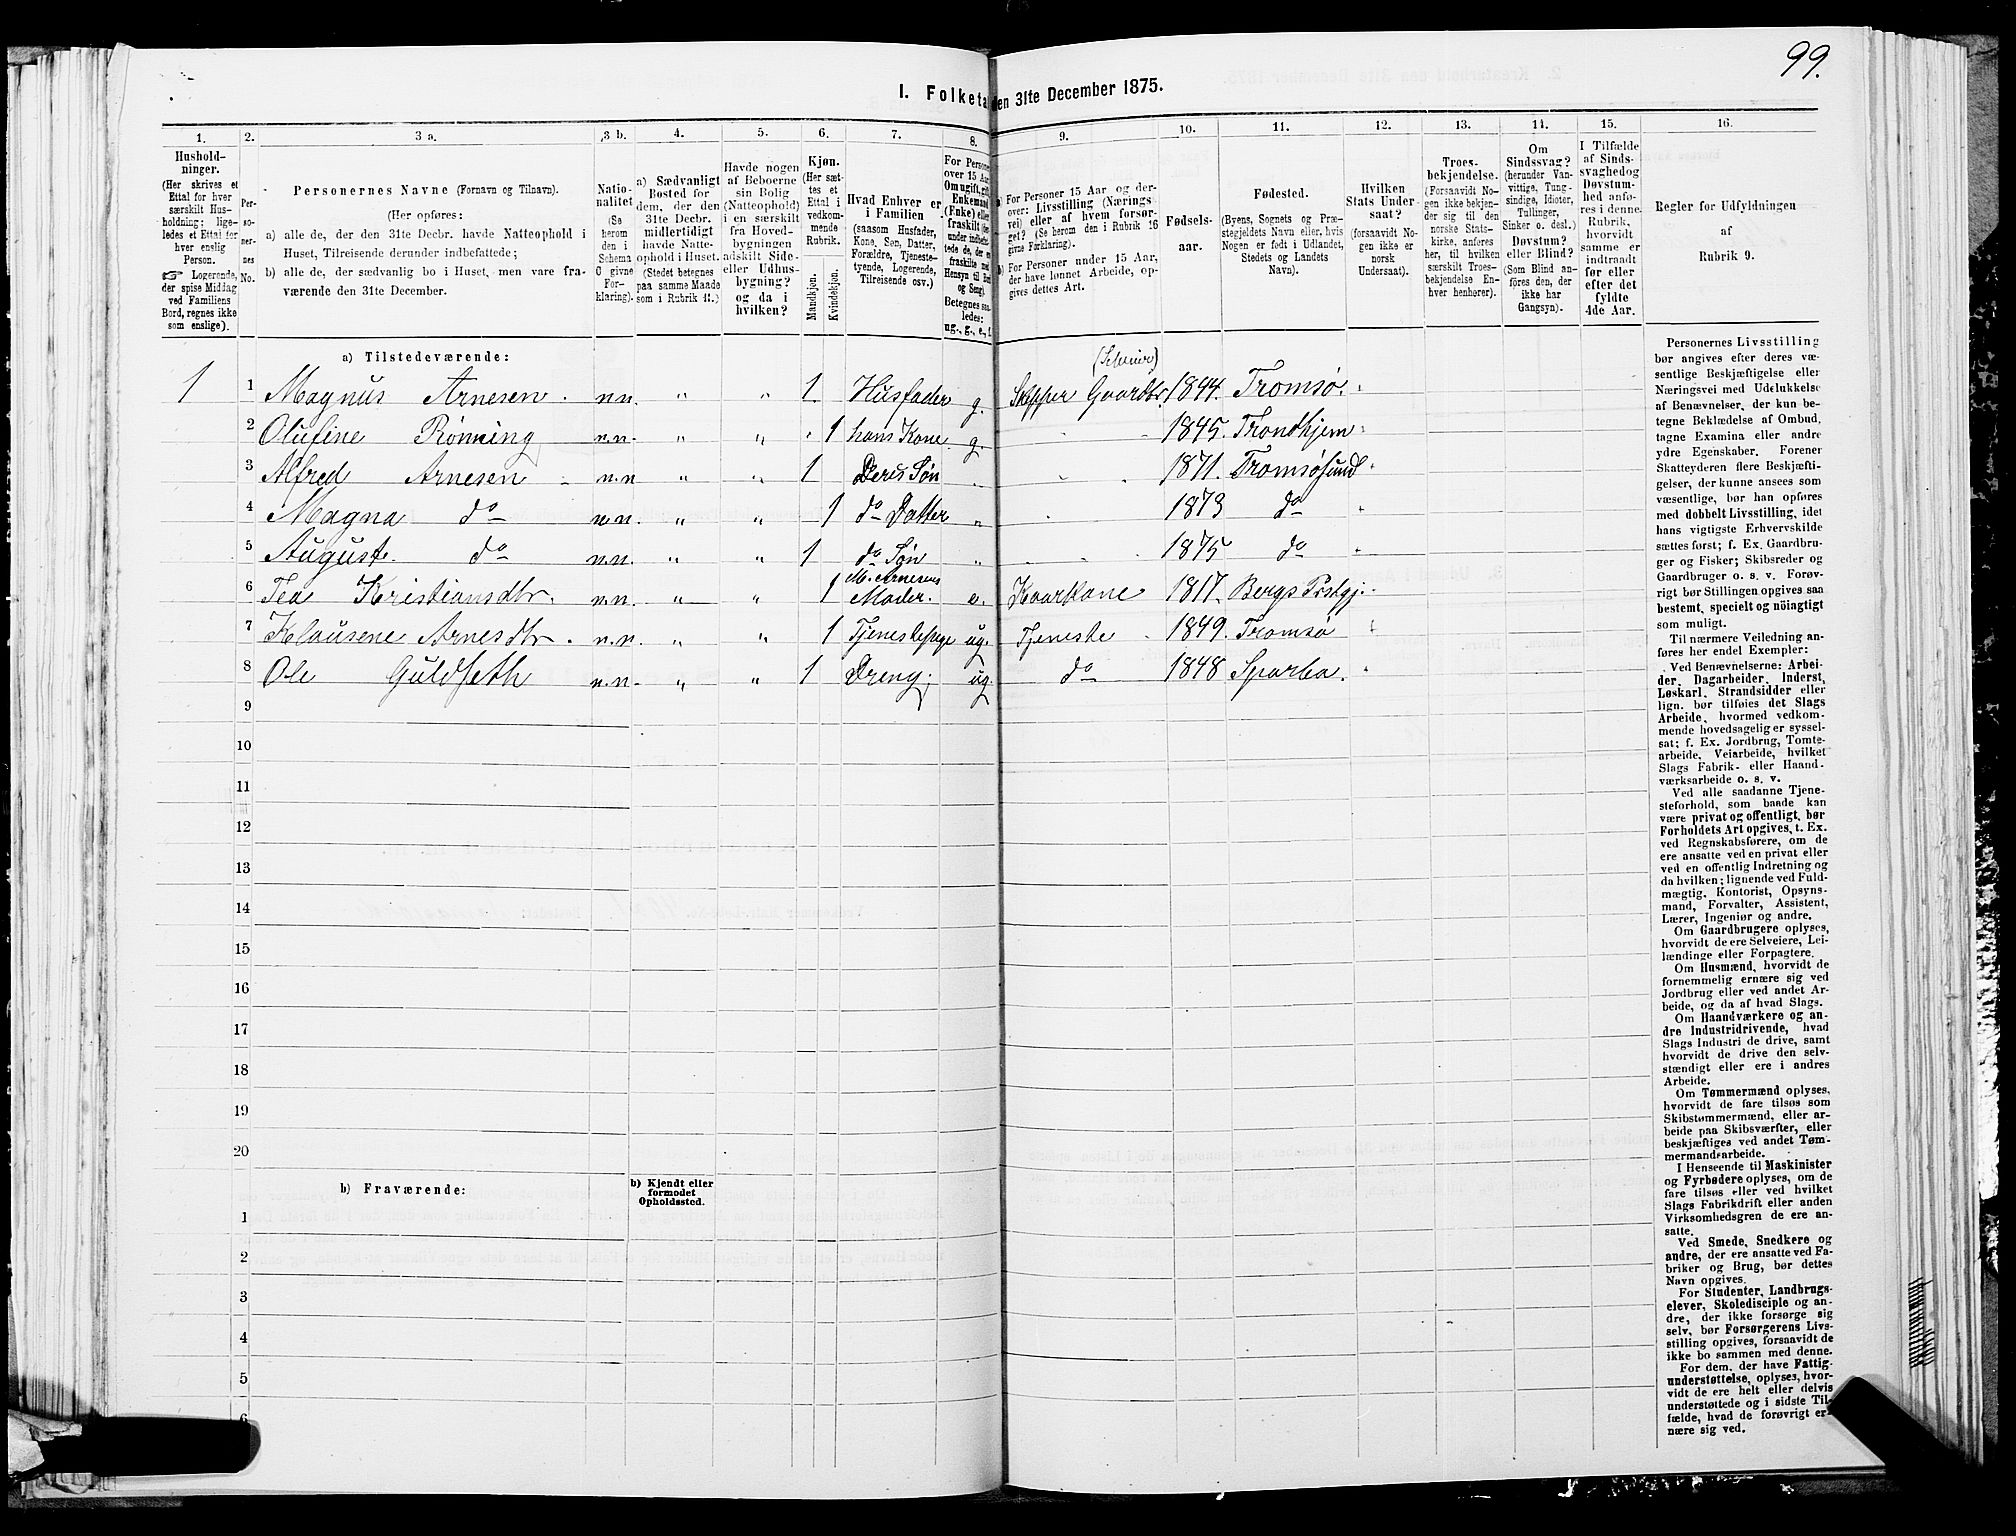 99.
I. Folketa
den 31te December 1875.
1.
Hushold-
ninger.
(Her skrives et
Ettal for hver
særskilt Hus-
holdning; lige-
ledes et Ettal for
hver enslig
Person.
☞ Logerende,
der spise Middag
ved Familiens
Bord, regnes ikke
som enslige).
2.
Per-
so-
ner-
nes
No.
3 a.
Personernes Navne (Fornavn og Tilnavn).
(Her opføres:
a) alle de, der den 31te Decbr. havde Natteophold i
Huset, Tilreisende derunder indbefattede;
b) alle de, der sædvanlig bo i Huset, men vare fra-
værende den 31te December.
3 b.
Natio-
nalitet
(Se
herom
den i
Schema
O givne
For-
klaring).
4.
a) Sædvanligt
Bosted for
dem, der den
31te Decbr.
midlertidigt
havde Natte-
ophold i Huset.
(Stedet betegnes
paa samme Maade
som i Rubrik 11.)
5.
Havde nogen
af Beboerne
sin Bolig
(Natteophold)
i en særskilt
fra Hoved-
bygningen
adskilt Side-
eller Udhus-
bygning?
og da i
hvilken?
6.
Kjøn.
(Her sæt-
tes et
Ettal i
vedkom-
mende
Rubrik.
Mandkjøn.
Kvindekjøn.
7.
Hvad Enhver er
i Familien
(saasom Husfader,
Kone, Søn, Datter,
Forældre, Tjeneste-
tyende, Logerende,
Tilreisende osv.)
8.
For Personer
over 15 Aar:
Om ugift, gift,
Enkemand
(Enke) eller
fraskilt
Betegnes saa-
ledes:
ug., g., e., f.
9.
a) For Personer 15 Aar og der-
over: Livsstilling (Nærings-
vei) eller af hvem forsør-
get? (Se herom den i Rubrik 16
givne Færklaring).
b) For Personer under 15 Aar,
der have lønnet Arbeide, op-
gives dettes Art.
10.
Fødsels-
aar.
11.
Fødested.
(Byens, Sognets og Præ-
stegjeldets Navn eller, hvis
Nogen er født i Udlandet,
Stedets og Landets
Navn).
12.
Hvilken
Stats Under-
saat?
(forsaavidt No-
gen ikke er
norsk
Undersaat).
13.
Troes-
bekjendelse.
(Forsaavidt No-
gen ikke bekjen-
der sig til den
norske Stats-
kirke, anføres
her, til hvilken
særskilt Troes-
bekjendelse En-
hver henhører).
14.
Om
Sindssvag?
(herunder Van-
vittige, Tung-
sindige, Idioter,
Tullinger,
Sinker o. desl.)
Døvstum?
eller Blind?
(Som Blind an-
føres den, der
ikke har
Gangsyn).
15.
I Tilfælde
af Sinds-
svaghed og
Døvstum-
hed anfø-
res i denne
Rubrik,
hvorvidt
samme er
indtraadt
før eller
efter det
fyldte
4de Aar.
16.
Regler for Udfyldningen
af
Rubrik 9.
a) Tilstedeværende:
1 1 Magnus Arnesen. n.n. " " 1 Husfader g. Skipper Gaardbr. (Seleuier) 1844. Tromsø.
2 Olufine Rønning n.n. " " 1 hans Kone g. 1845. Trondhjem
3 Alfred Arnesen n.n " " 1 Deres Søn " 1871. Tromsøsund
4 Magna do n.n. " " 1 do Datter " 1873 do
5 August. do n.n. " " 1 do Søn " 1875 do
6 Tea Kristiansdtr. n.n. " " 1 M. Arnesens Moder. e. Kaarkone 1817. Bergs Prstgj.
7 Klausene Arnesdtr. n.n. " " 1 Tjenestepige ug. Tjeneste 1849. Tromsø
8 Ole Guldseth n.n. " " 1 Dreng. ug. do 1848 Sparbo.
9
10
11
12
13
14
15
16
17
18
19
20
b) Fraværende:
b) Kjendt eller
formodet
Opholdssted.
1
2
3
4
5
6
Personernes Livsstilling
bør angives efter deres væ-
sentlige Beskjæftigelse eller
Næringsvei med Udelukkelse
af Benævnelser, der kun be-
tegne Beklædelse af Ombud,
tagne Examina eller andre
ydre Egenskaber. Forener
Skatteyderen flere Beskjæfti-
gelser, der kunne ansees som
væsentlige, bør han opføres
med dobbelt Livsstilling, idet
hans vigtigste Erhvervskilde
sættes først; f. Ex. Gaardbru-
ger og Fisker; Skibsreder og
Gaardbruger o. s. v. Forøv-
rigt bør Stillingen opgives saa
bestemt, specielt og nöiagtigt
som muligt.
Til nærmere Veiledning an-
føres her endel Exempler:
Ved Benævnelserne: Arbei-
der, Dagarbeider, Inderst,
Løskarl, Strandsidder eller
lign. bør tilføies det Slags
Arbeide, hvormed vedkom-
mende hovedsagelig er syssel-
sat; f. Ex. Jordbrug, Tomte-
arbeide, Veiarbeide, hvilket
Slags Fabrik- eller Haand-
værksarbeide o. s. v.
Ved alle saadanne Tjene-
steforhold, som baade kan
være privat og offentligt, bør
Forholdets Art opgives, t. Ex.
ved Regnskabsførere, om de
ere ansatte ved en privat eller
ved en offentlig Indretning og
da hvilken; lignende ved Fuld-
mægtig, Kontorist, Opsyns-
mand, Forvalter, Assistent,
Lærer, Ingeniør og andre.
Om Gaardbrugere oplyses,
hvorvidt de ere Selveiere, Lei-
lændinge eller Forpagtere.
Om Husmænd, hvorvidt de
fornemmelig ernære sig ved
Jordbrug eller ved andet Ar-
beide, og da af hvad Slags.
Om Haandværkere og an-
dre Industridrivende, hvad
Slags Industri de drive, samt
hvorvidt de drive den selv-
stændigt eller ere i andres
Arbeide.
Om Tømmermænd oplyses,
hvorvidt de fare tilsøs som
Skibstømmermænd, eller ar-
beide paa Skibsværfter, eller
beskjæftiges ved andet Tøm-
mermandsarbeide.
I Henseende til Maskinister
og Fyrbødere oplyses, om de
fare tilsøs eller ved hvilket
Slags Fabrikdrift eller anden
Virksomhedsgren de ere an-
satte.
Ved Smede, Snedkere og
andre, der ere ansatte ved Fa-
briker og Brug, bør dettes
Navn opgives.
For Studenter, Landbrugs-
elever, Skoledisciple og an-
dre, der ikke forsørge sig
selv, bør Forsørgerens Livs-
stilling opgives, forsaavidt de
ikke bo sammen med denne.
For dem, der have Fattig-
understøttelse, oplyses, hvor-
vidt de ere helt eller delvis
understøttede og i sidste Til-
fælde, hvad de forøvrigt er-
nære sig ved.